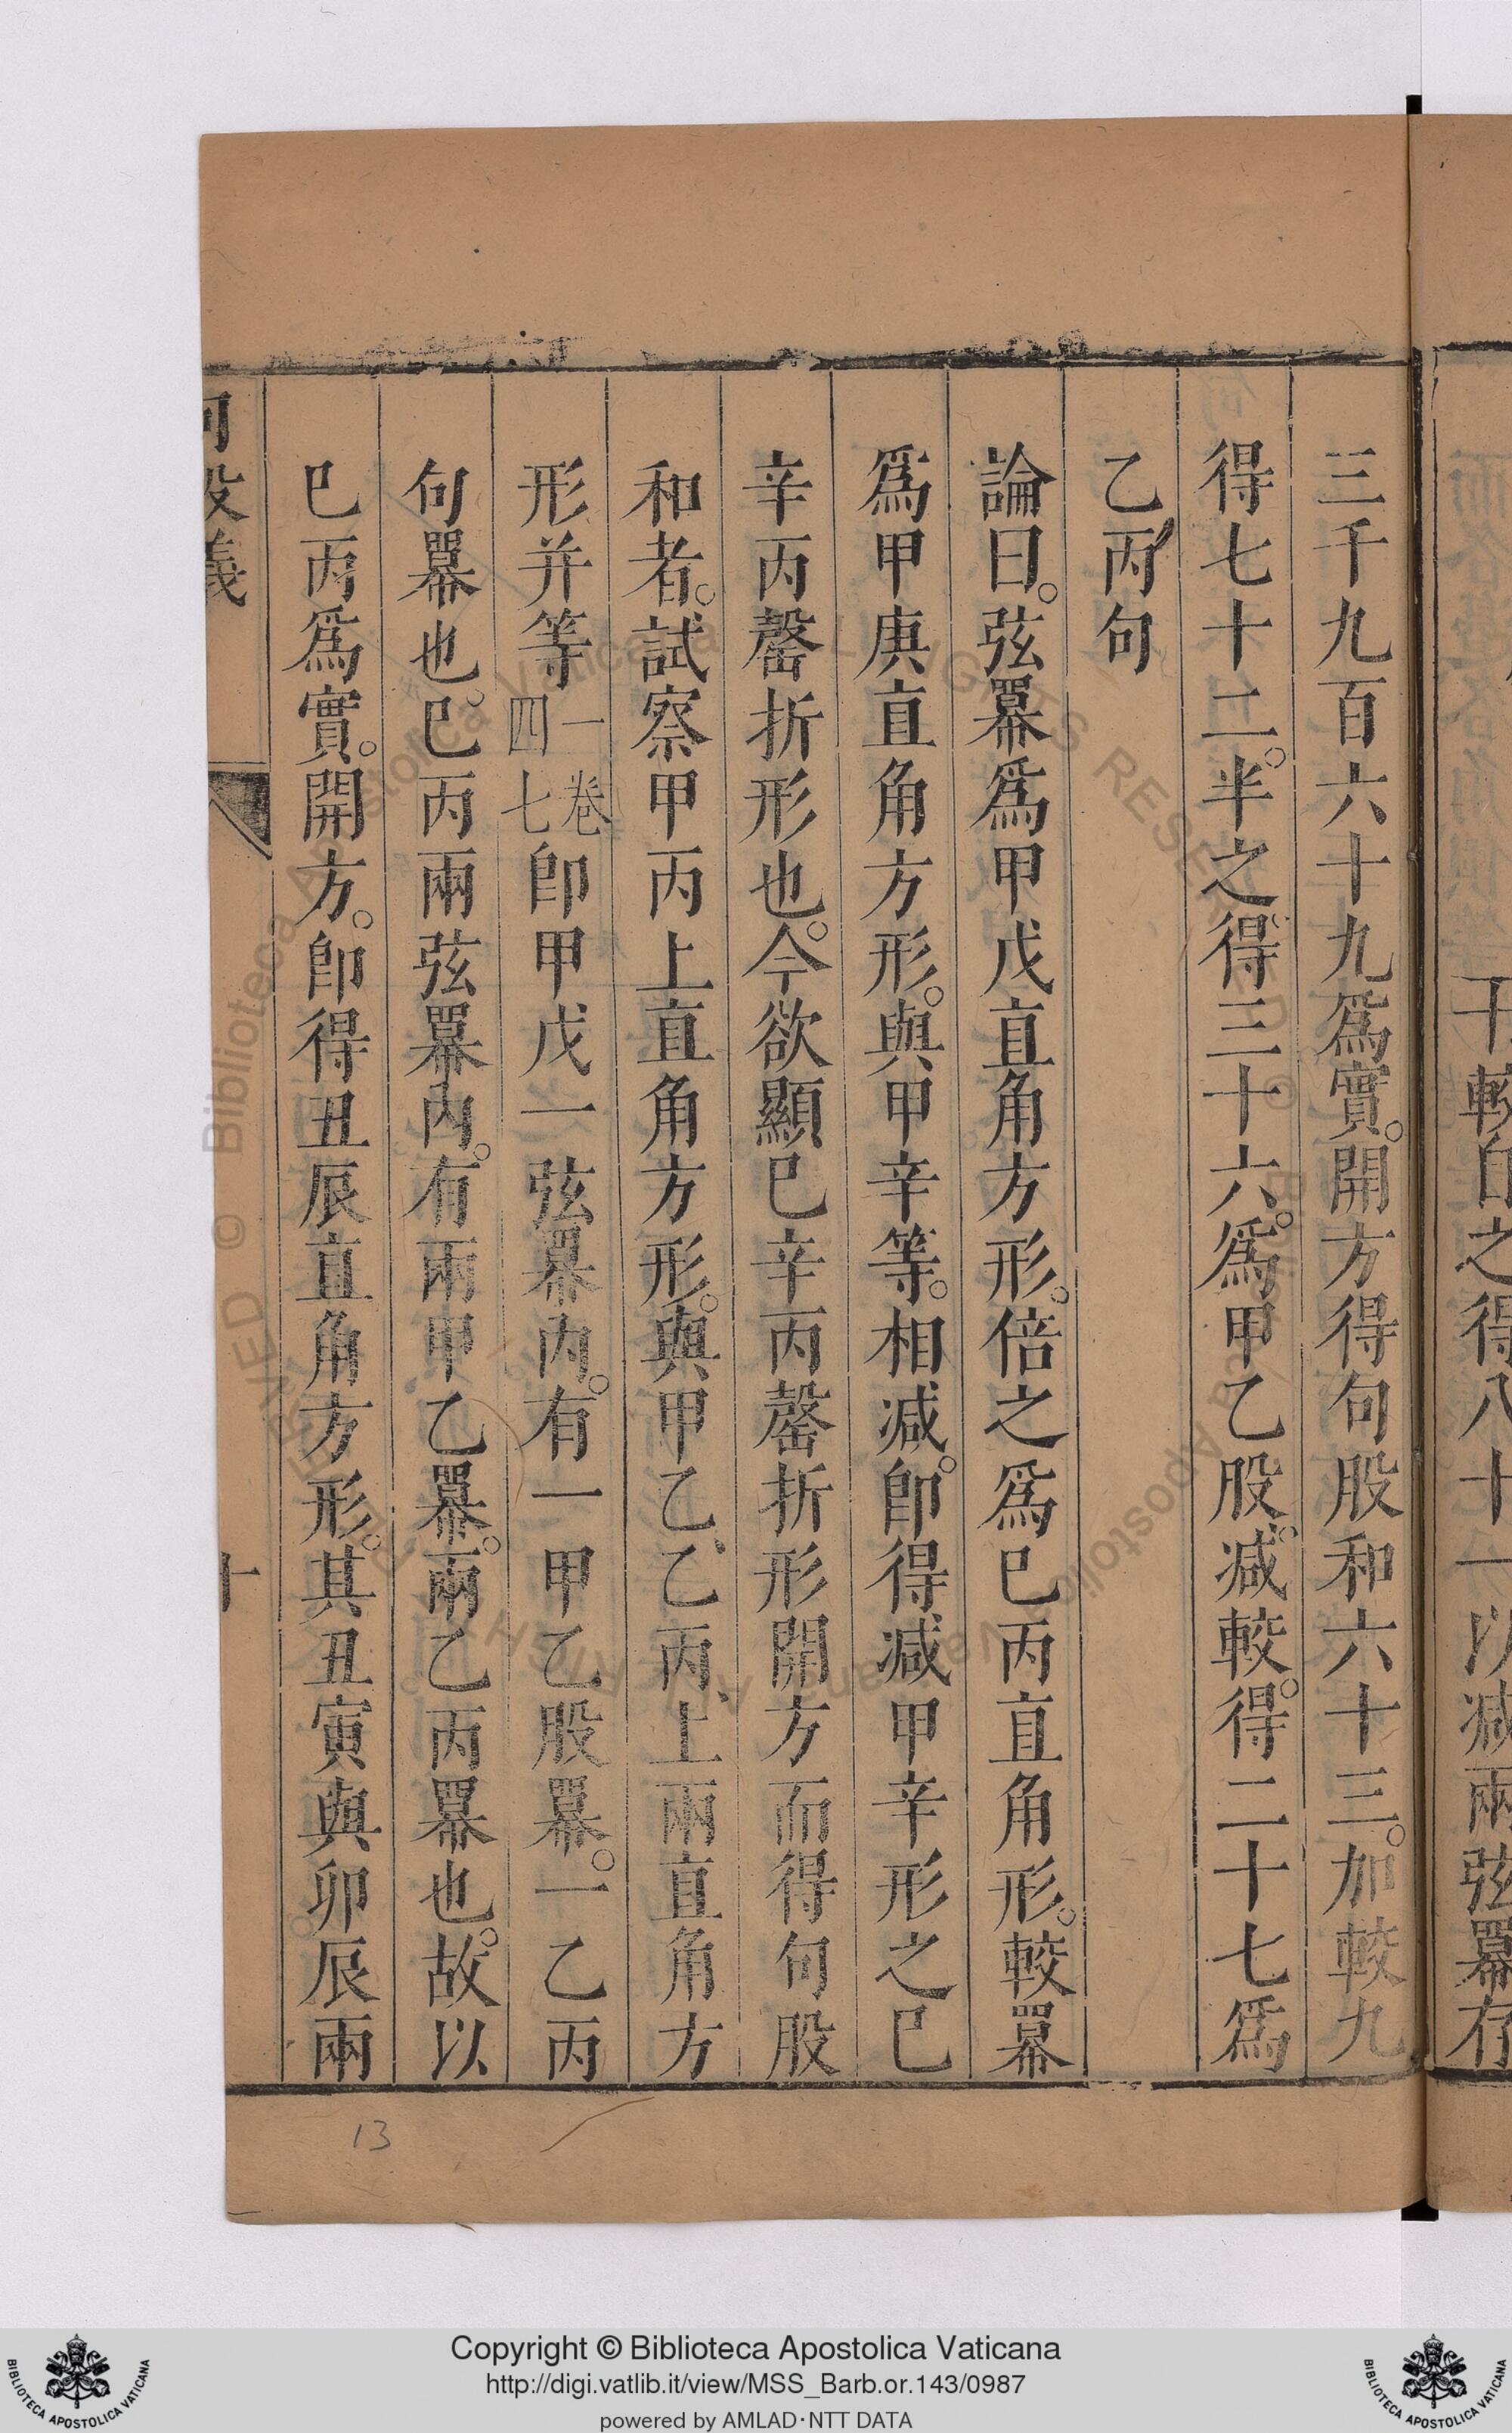 三千九百六十九爲實。開方得句股和六十三。加較九
得七十二。半之得三十六。爲甲乙股。减較。得二十七爲
乙丙句
論曰。弦羃爲甲戊直角方形。倍之爲巳丙直角形。較羃
爲甲庚直角方形。與甲辛等。相减。卽得减甲辛形之巳
辛丙罄折形也。今欲顯巳辛丙罄折形開方而得句股
和者。試察甲丙上直角方形。與甲乙、乙丙、上兩直角方
形并等一卷四七卽甲戊一弦羃內。有一甲乙股羃。一乙丙
句羃也。巳丙兩弦羃內。有兩甲乙羃。兩乙丙羃也。故以
巳丙爲實。開方。卽得丑辰直角方形。其丑寅與卯辰兩
句股義
十
較自之得八十一以减兩弦羃存
13
Copyright © Biblioteca Apostolica Vaticana
http://digi.vatlib.it/view/MSS_Barb.or.143/0987
powered by AMLAD·NTT DATA